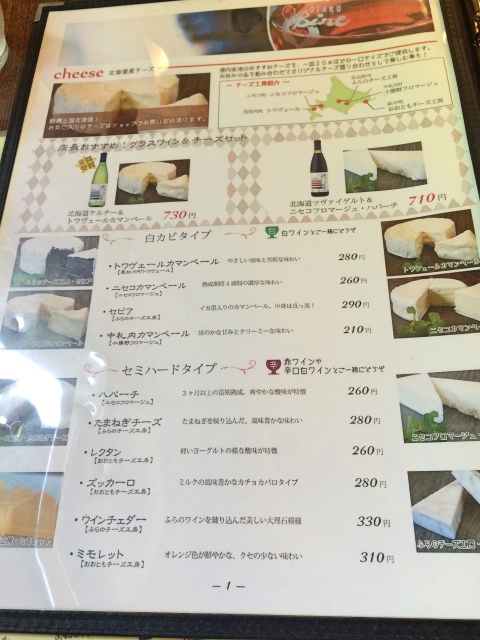 OTARU
Bine
cheese 北海道産チーズ
道内各地のおすすめチーズを、一皿20gほどの一口サイズでご提供します。
お好みの品を組み合わせてオリジナルチーズ盛り合わせとして楽しむ事も!
〜 チーズ工房紹介 〜
富良野市
ふらのチーズ工房
ニセコ町 ニセコフロマージュ
中札内村
十勝野フロマージュ
黒松内町 トワヴェール
おおともチーズ工房
酪農王国北海道!
お気に入りのチーズはショップでお買い求め頂けます。
店長おすすめ!グラスワイン & チーズセット
北海道ケルナー&
トワヴェールカマンベール 730円
北海道ツヴァイゲルト&
ニセコフロマージュ・ハバーチ 710円
白カビタイプ
白 白ワインとご一緒にどうぞ
・トワヴェールカマンベール やさしい風味と芳醇な味わい 280円
【黒松内町トワヴェール】
・ニセコカマンベール 熟成期間4週間の濃厚な味わい 260円
【ニセコフロマージュ】
・セピア イカ墨入りのカマンベール、中身は真っ黒! 290円
【ふらのチーズ工房】
・中札内カマンベール ほのかな甘みとクリーミーな味わい 210円
【十勝野フロマージュ】
トワヴェールカマンベール
ニセコカマンベール
セミハードタイプ
辛 赤ワインや
辛口白ワインとご一緒にどうぞ
・ハバーチ 3ヶ月以上の長期熟成。爽やかな酸味が特徴 260円
【ニセコフロマージュ】
・たまねぎチーズ たまねぎを練り込んだ、風味豊かな味わい 280円
【ふらのチーズ工房】
・レクタン 軽いヨーグルトの様な酸味が特徴 260円
【おおともチーズ工房】
・ズッカーロ ミルクの風味豊かなカチョカバロタイプ 280円
【おおともチーズ工房】
・ワインチェダー ふらのワインを練り込んだ美しい大理石模様 330円
【ふらのチーズ工房】
・ミモレット オレンジ色が鮮やかな、クセの少ない味わい 310円
【おおともチーズ工房】
ニセコフロマージュ・
ふらのチーズ工房・
– 1 –